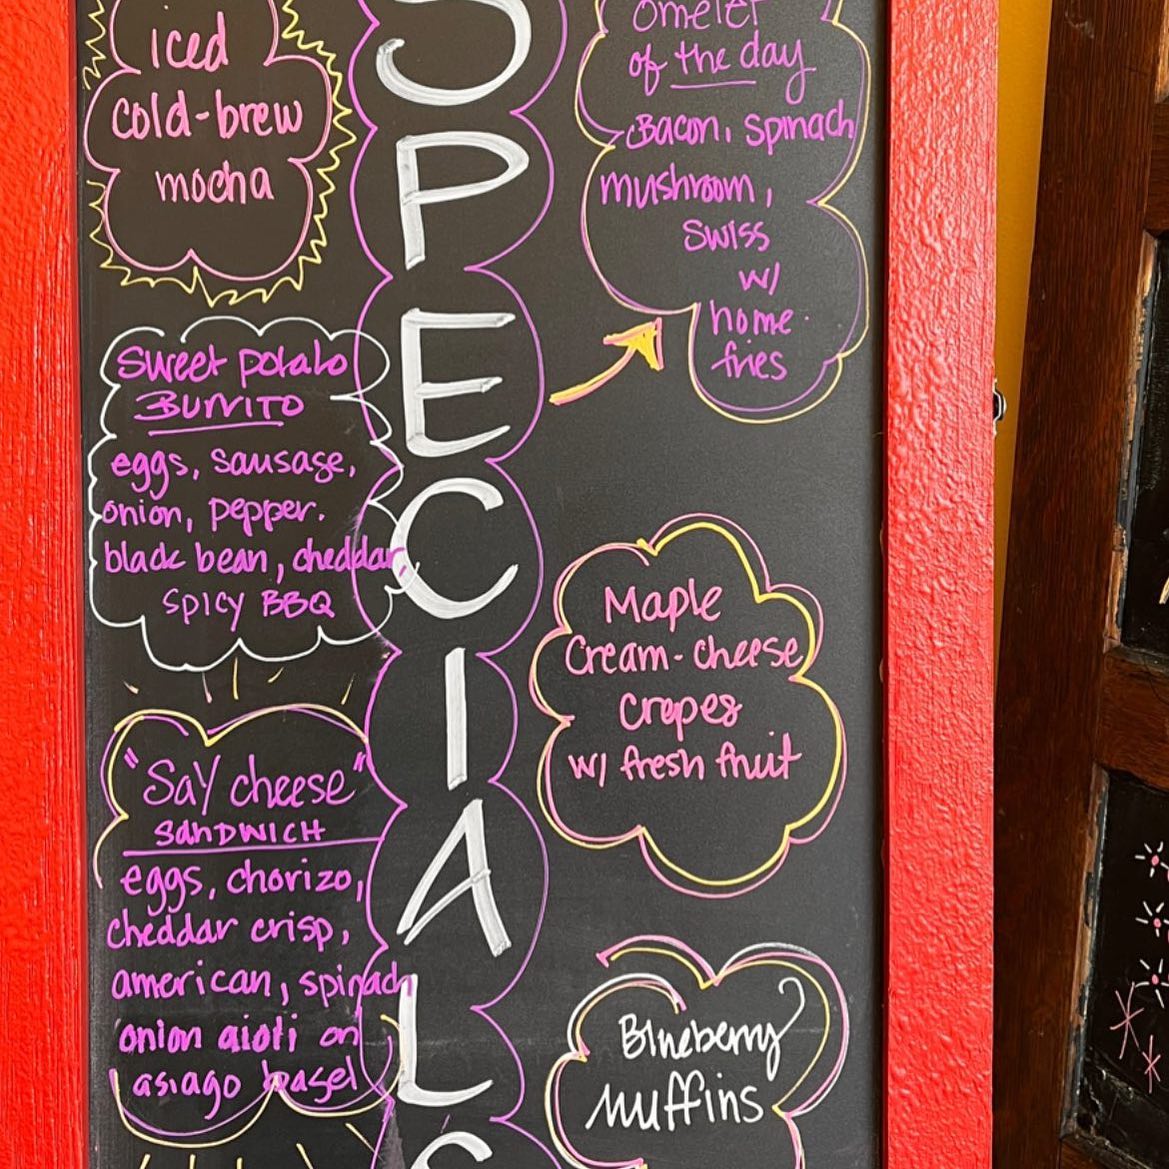 iced
cold-brew
mocha
sweet potato
BURRITO
eggs, sausage,
onion, pepper.
black bean, cheddar,
SPICY BBQ
"Say cheese"
SANDWICH
eggs, chorizo,
cheddar crisp,
american, spinach
onion aioli on
asiago bagel
SPECIALS
omelet
of the day
Bacon, spinach
mushroom,
Swiss
w/
home
fries
Maple
Cream-cheese
Crepes
w/ fresh fruit
Blueberry
Muffins